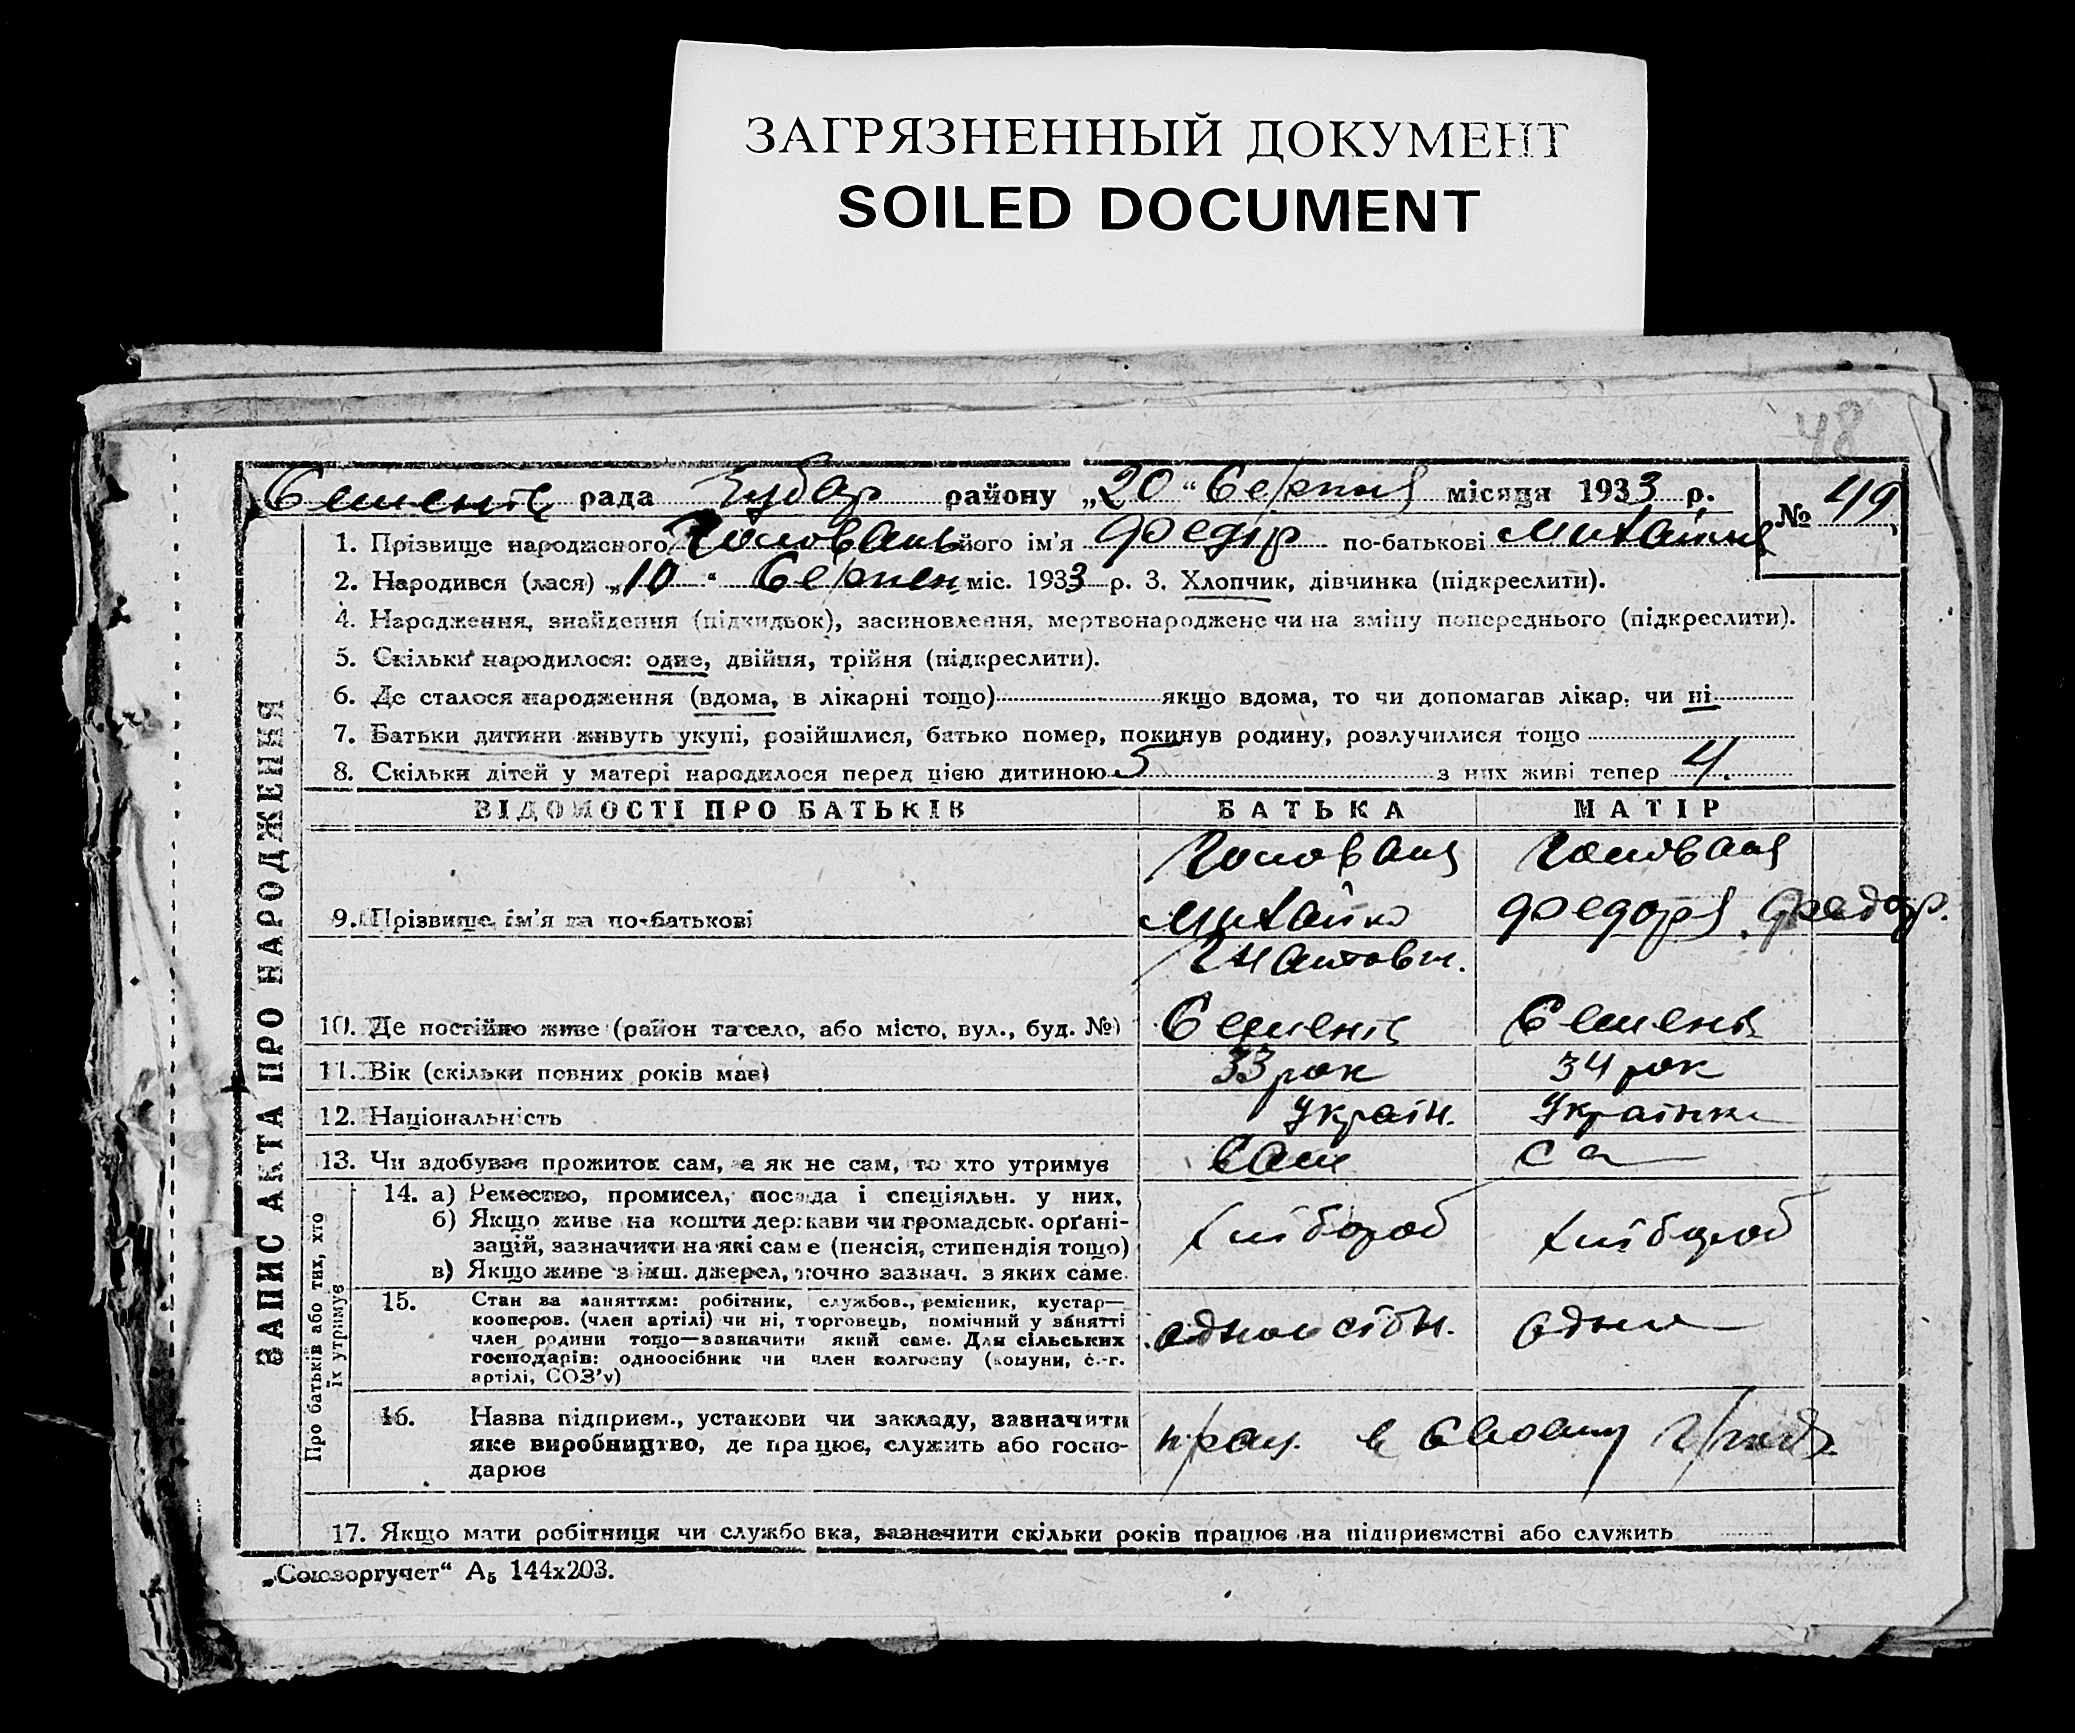 ЗАГРЯЗНЕННЫЙ ДОКУМЕНТ
SOILED DOCUMENT
48
рада Чубар району „20“ Серпня місяця 1933 р.
№ 49
1. Прізвище народженого Головань його ім'я Федір по-батькові Михайл
2. Народився (лася) „10“ Серпен міс. 1933 р. 3. Хлопчик, дівчинка (підкреслити).
4. Народження, знайдення (підкидьок), засиновлення, мертвонароджене чи на зміну попереднього (підкреслити).
5. Скільки народилося: одне, двійня, трійня (підкреслити).
6. Де сталося народження (вдома, в лікарні тощо) якщо вдома, то чи допомагав лікар, чи ні
7. Батьки дитини живуть укупі, розійшлися, батько помер, покинув родину, розлучилися тощо
8. Скільки дітей у матері народилося перед цією дитиною 5 з них живі тепер 4.
ЗАПИС АКТА ПРО НАРОДЖЕННЯ
ВІДОМОСТІ ПРО БАТЬКІВ БАТЬКА МАТІР
Головань Головань
9. Прізвище, ім'я та по-батькові Михайло Федора Федор.
Гнатович.
10. Де постійно живе (район та село, або місто, вул., буд. №)
11. Вік (скільки повних років має) 33 рок 34 рок
12. Національність Україн. Українка
13. Чи здобуває прожиток сам, а як не сам, то хто утримує Сам Са
Про батьків або тих, хто
їх утримує
14. а) Ремество, промисел, посада і спеціяльн. у них.
б) Якщо живе на кошти держави чи громадськ. орґані-
зацій, зазначити на які саме (пенсія, стипендія тощо)
в) Якщо живе з інш. джерел, точно зазнач. з яких саме.
хлібороб хлібороб
15. Стан за заняттям: робітник, службов., ремісник, кустар—
кооперов. (член артілі) чи ні, торговець, помічний у занятті
член родини тощо—зазначити який саме. Для сільських
господарів: одноосібник чи член колгоспу (комуни, с.-г.
артілі, СОЗ'у)
одноосібн. одно
16. Назва підприєм., установи чи закладу, зазначити
яке виробництво, де працює, служить або госпо-
дарює
прац. в своему
17. Якщо мати робітниця чи службовка, зазначити скільки років працює на підприємстві або служить
„Союзоргучет“ А5 144х203.